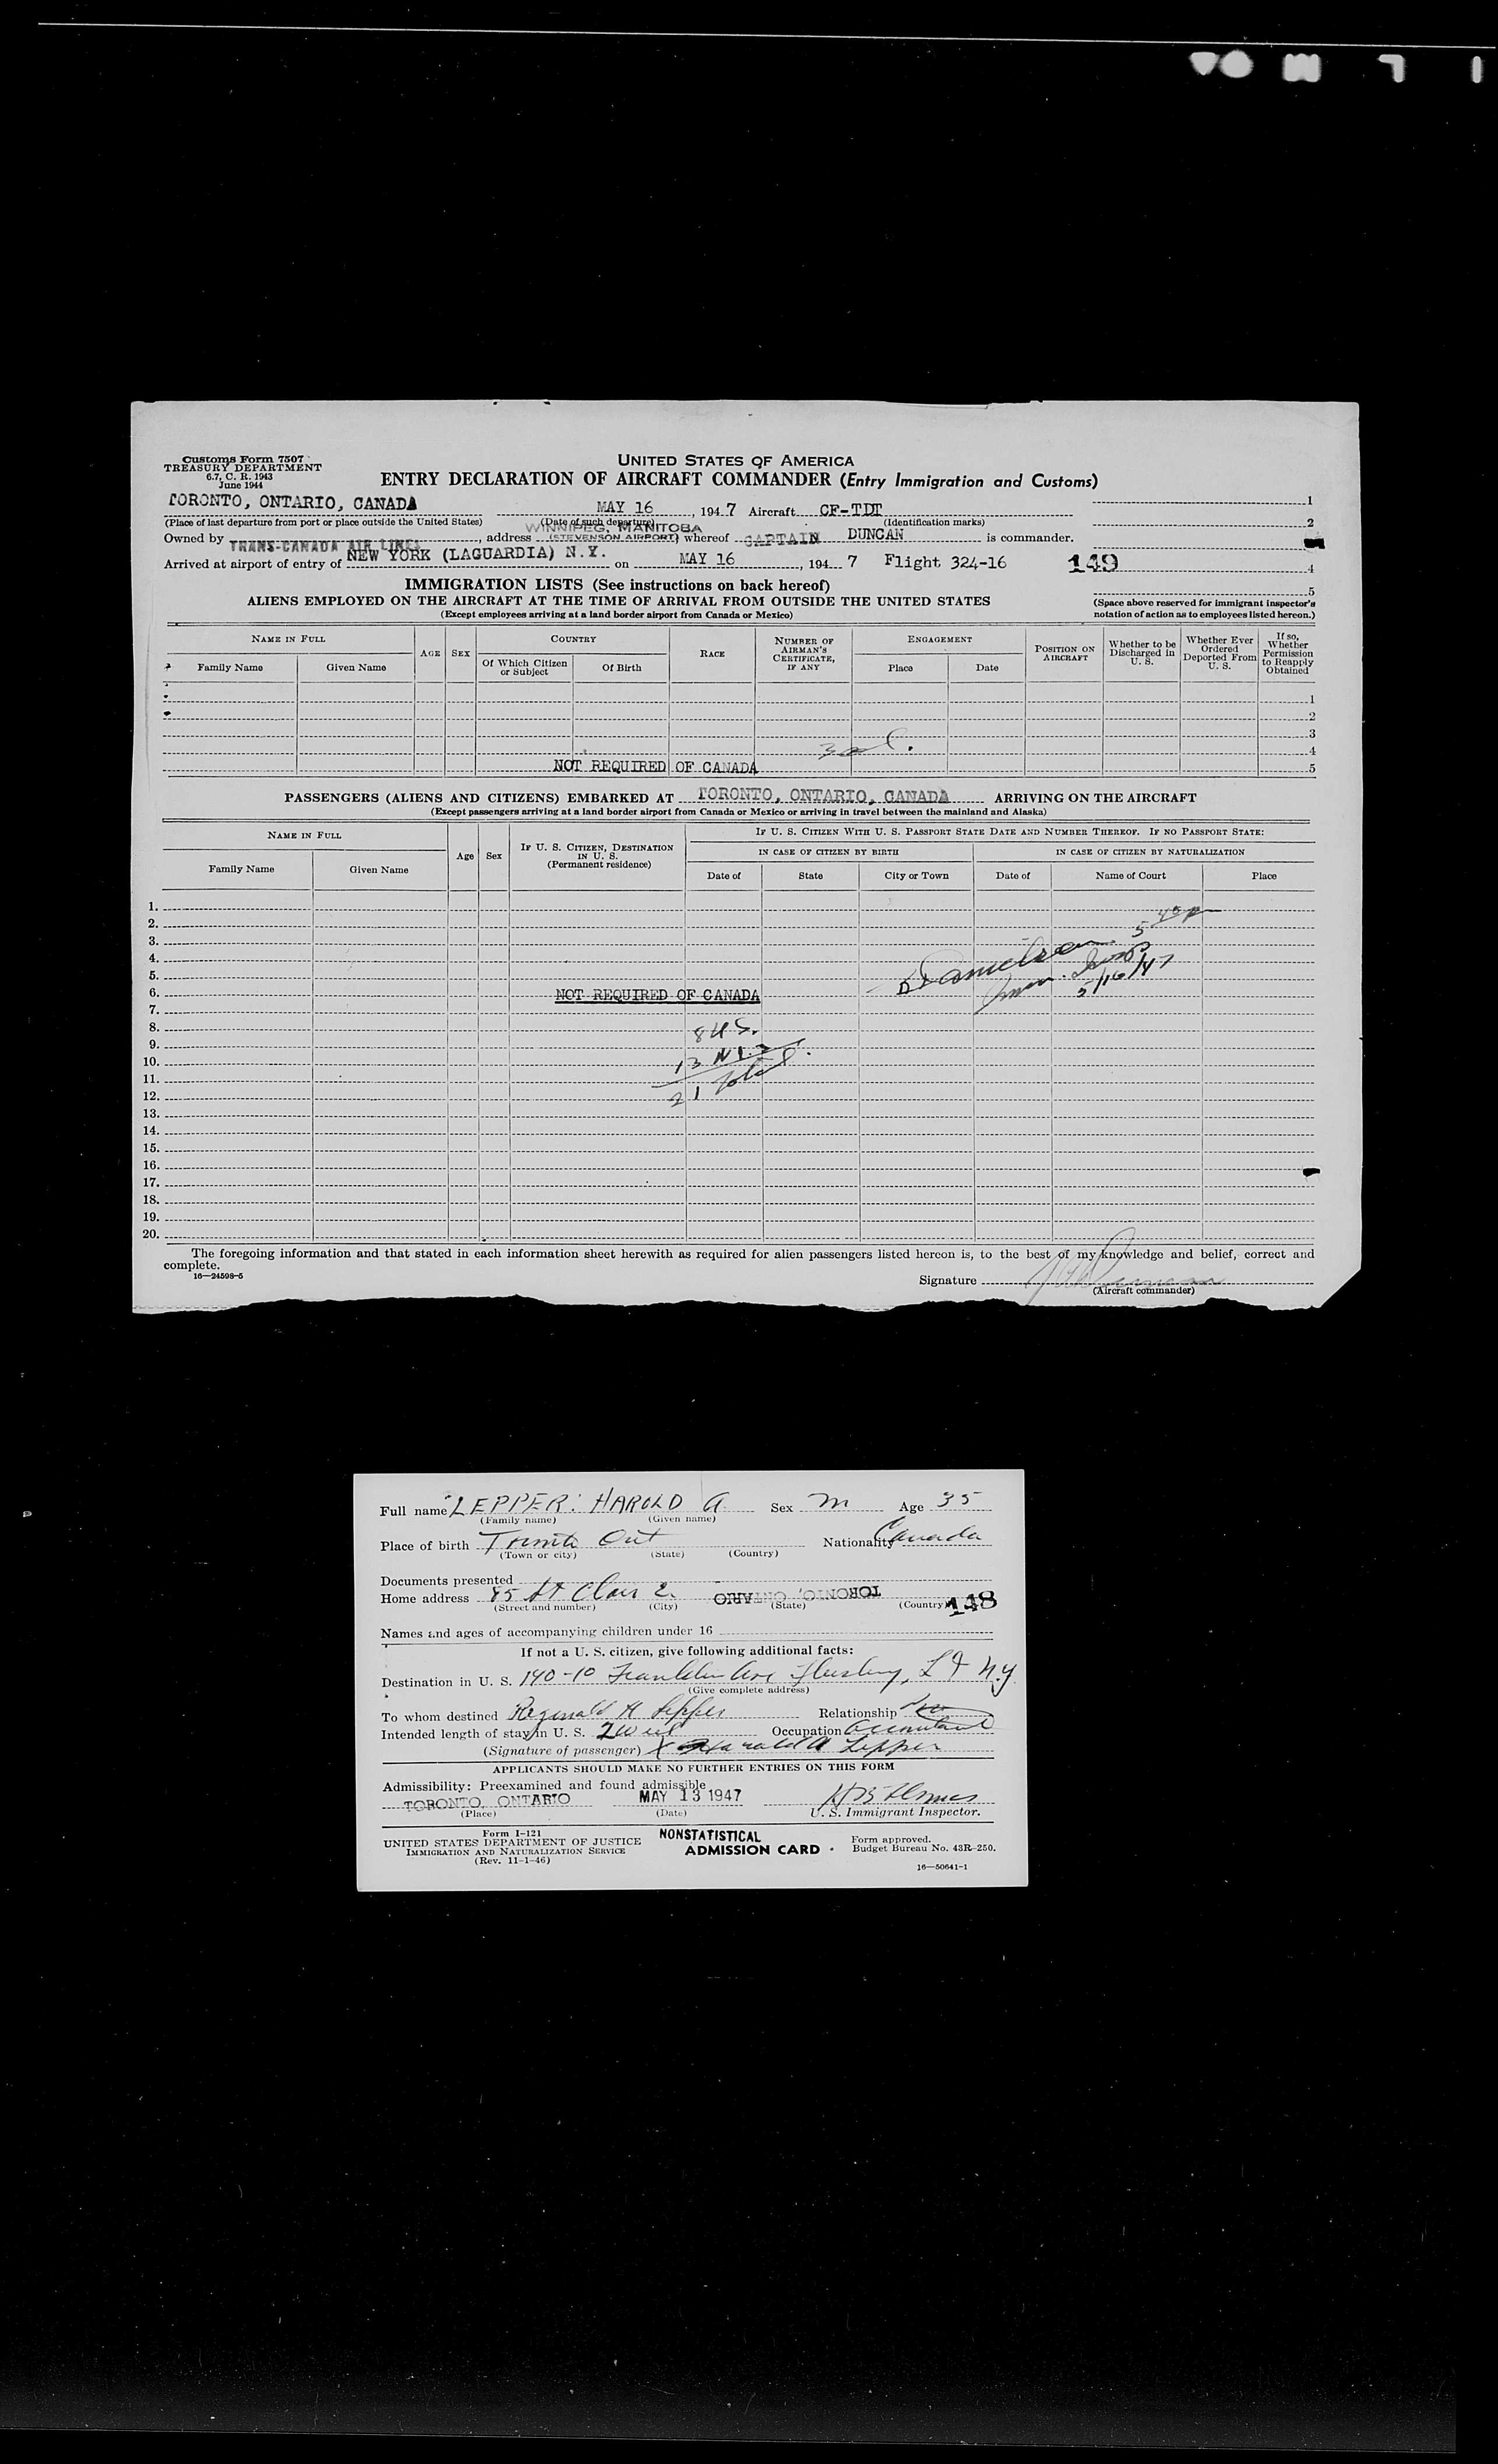 Customs Form 7507
TREASURY DEPARTMENT
6.7, C. R. 1943
June 1944
UNITED STATES OF AMERICA
ENTRY DECLARATION OF AIRCRAFT COMMANDER (Entry Immigration and Customs)
TORONTO, ONTARIO, CANADA MAY 16, 1947 Aircraft CF-TDT 1
(Place of last departure from port or place outside the United States) (Date of such departure) (Identification marks) 2
WINNIPEG, MANITOBA
Owned by TRANS-CANADA AIR LINES, address (STEVENSON AIRPORT) whereof CAPTAIN DUNCAN is commander.
Arrived at airport of entry of NEW YORK (LAGUARDIA) N.Y. on MAY 16, 1947 Flight 324-16 149 4
5
IMMIGRATION LISTS (See instructions on back hereof)
ALIENS EMPLOYED ON THE AIRCRAFT AT THE TIME OF ARRIVAL FROM OUTSIDE THE UNITED STATES
(Except employees arriving at a land border airport from Canada or Mexico)
(Space above reserved for immigrant inspector's notation of action as to employees listed hereon.)
NAME IN FULL
Family Name Given Name
AGE SEX
COUNTRY
Of Which Citizen or Subject Of Birth
RACE
NUMBER OF AIRMAN'S CERTIFICATE, IF ANY
ENGAGEMENT
Place Date
POSITION ON AIRCRAFT
Whether to be Discharged in U. S.
Whether Ever Ordered Deported From U. S.
If so, Whether Permission to Reapply Obtained
1
2
3
4
NOT REQUIRED OF CANADA 5
PASSENGERS (ALIENS AND CITIZENS) EMBARKED AT TORONTO, ONTARIO, CANADA ARRIVING ON THE AIRCRAFT
(Except passengers arriving at a land border airport from Canada or Mexico or arriving in travel between the mainland and Alaska)
NAME IN FULL
Family Name Given Name
Age Sex
IF U. S. CITIZEN, DESTINATION IN U. S.
(Permanent residence)
IF U. S. CITIZEN WITH U. S. PASSPORT STATE DATE AND NUMBER THEREOF. IF NO PASSPORT STATE:
IN CASE OF CITIZEN BY BIRTH IN CASE OF CITIZEN BY NATURALIZATION
Date of State City or Town Date of Name of Court Place
1.
2.
3.
4.
5.
5/16/47
6. NOT REQUIRED OF CANADA
7.
8. 8 US.
9.
10. 13
11.
12. 21 total
13.
14.
15.
16.
17.
18.
19.
20.
The foregoing information and that stated in each information sheet herewith as required for alien passengers listed hereon is, to the best of my knowledge and belief, correct and
complete.
16—24598-5
Signature
(Aircraft commander)
Full name LEPPER: HAROLD A Sex M Age 35
(Family name) (Given name)
Place of birth Toronto Ont Nationality Canada
(Town or city) (State) (Country)
Documents presented
Home address 85 St Clair E. TORONTO, ONTARIO 148
(Street and number) (City) (State) (Country)
Names and ages of accompanying children under 16
If not a U. S. citizen, give following additional facts:
Destination in U. S. 140-10 Franklin Ave Flushing, L I N.Y
(Give complete address)
To whom destined Reginald H Lepper Relationship
Intended length of stay in U. S. 2 Occupation Accountant
(Signature of passenger) X Harold A Lepper
APPLICANTS SHOULD MAKE NO FURTHER ENTRIES ON THIS FORM
Admissibility: Preexamined and found admissible
TORONTO, ONTARIO MAY 13 1947
(Place) (Date) U. S. Immigrant Inspector.
Form I-121
UNITED STATES DEPARTMENT OF JUSTICE
IMMIGRATION AND NATURALIZATION SERVICE
(Rev. 11-1-46)
NONSTATISTICAL
ADMISSION CARD
Form approved.
Budget Bureau No. 43R-250.
16—50641-1